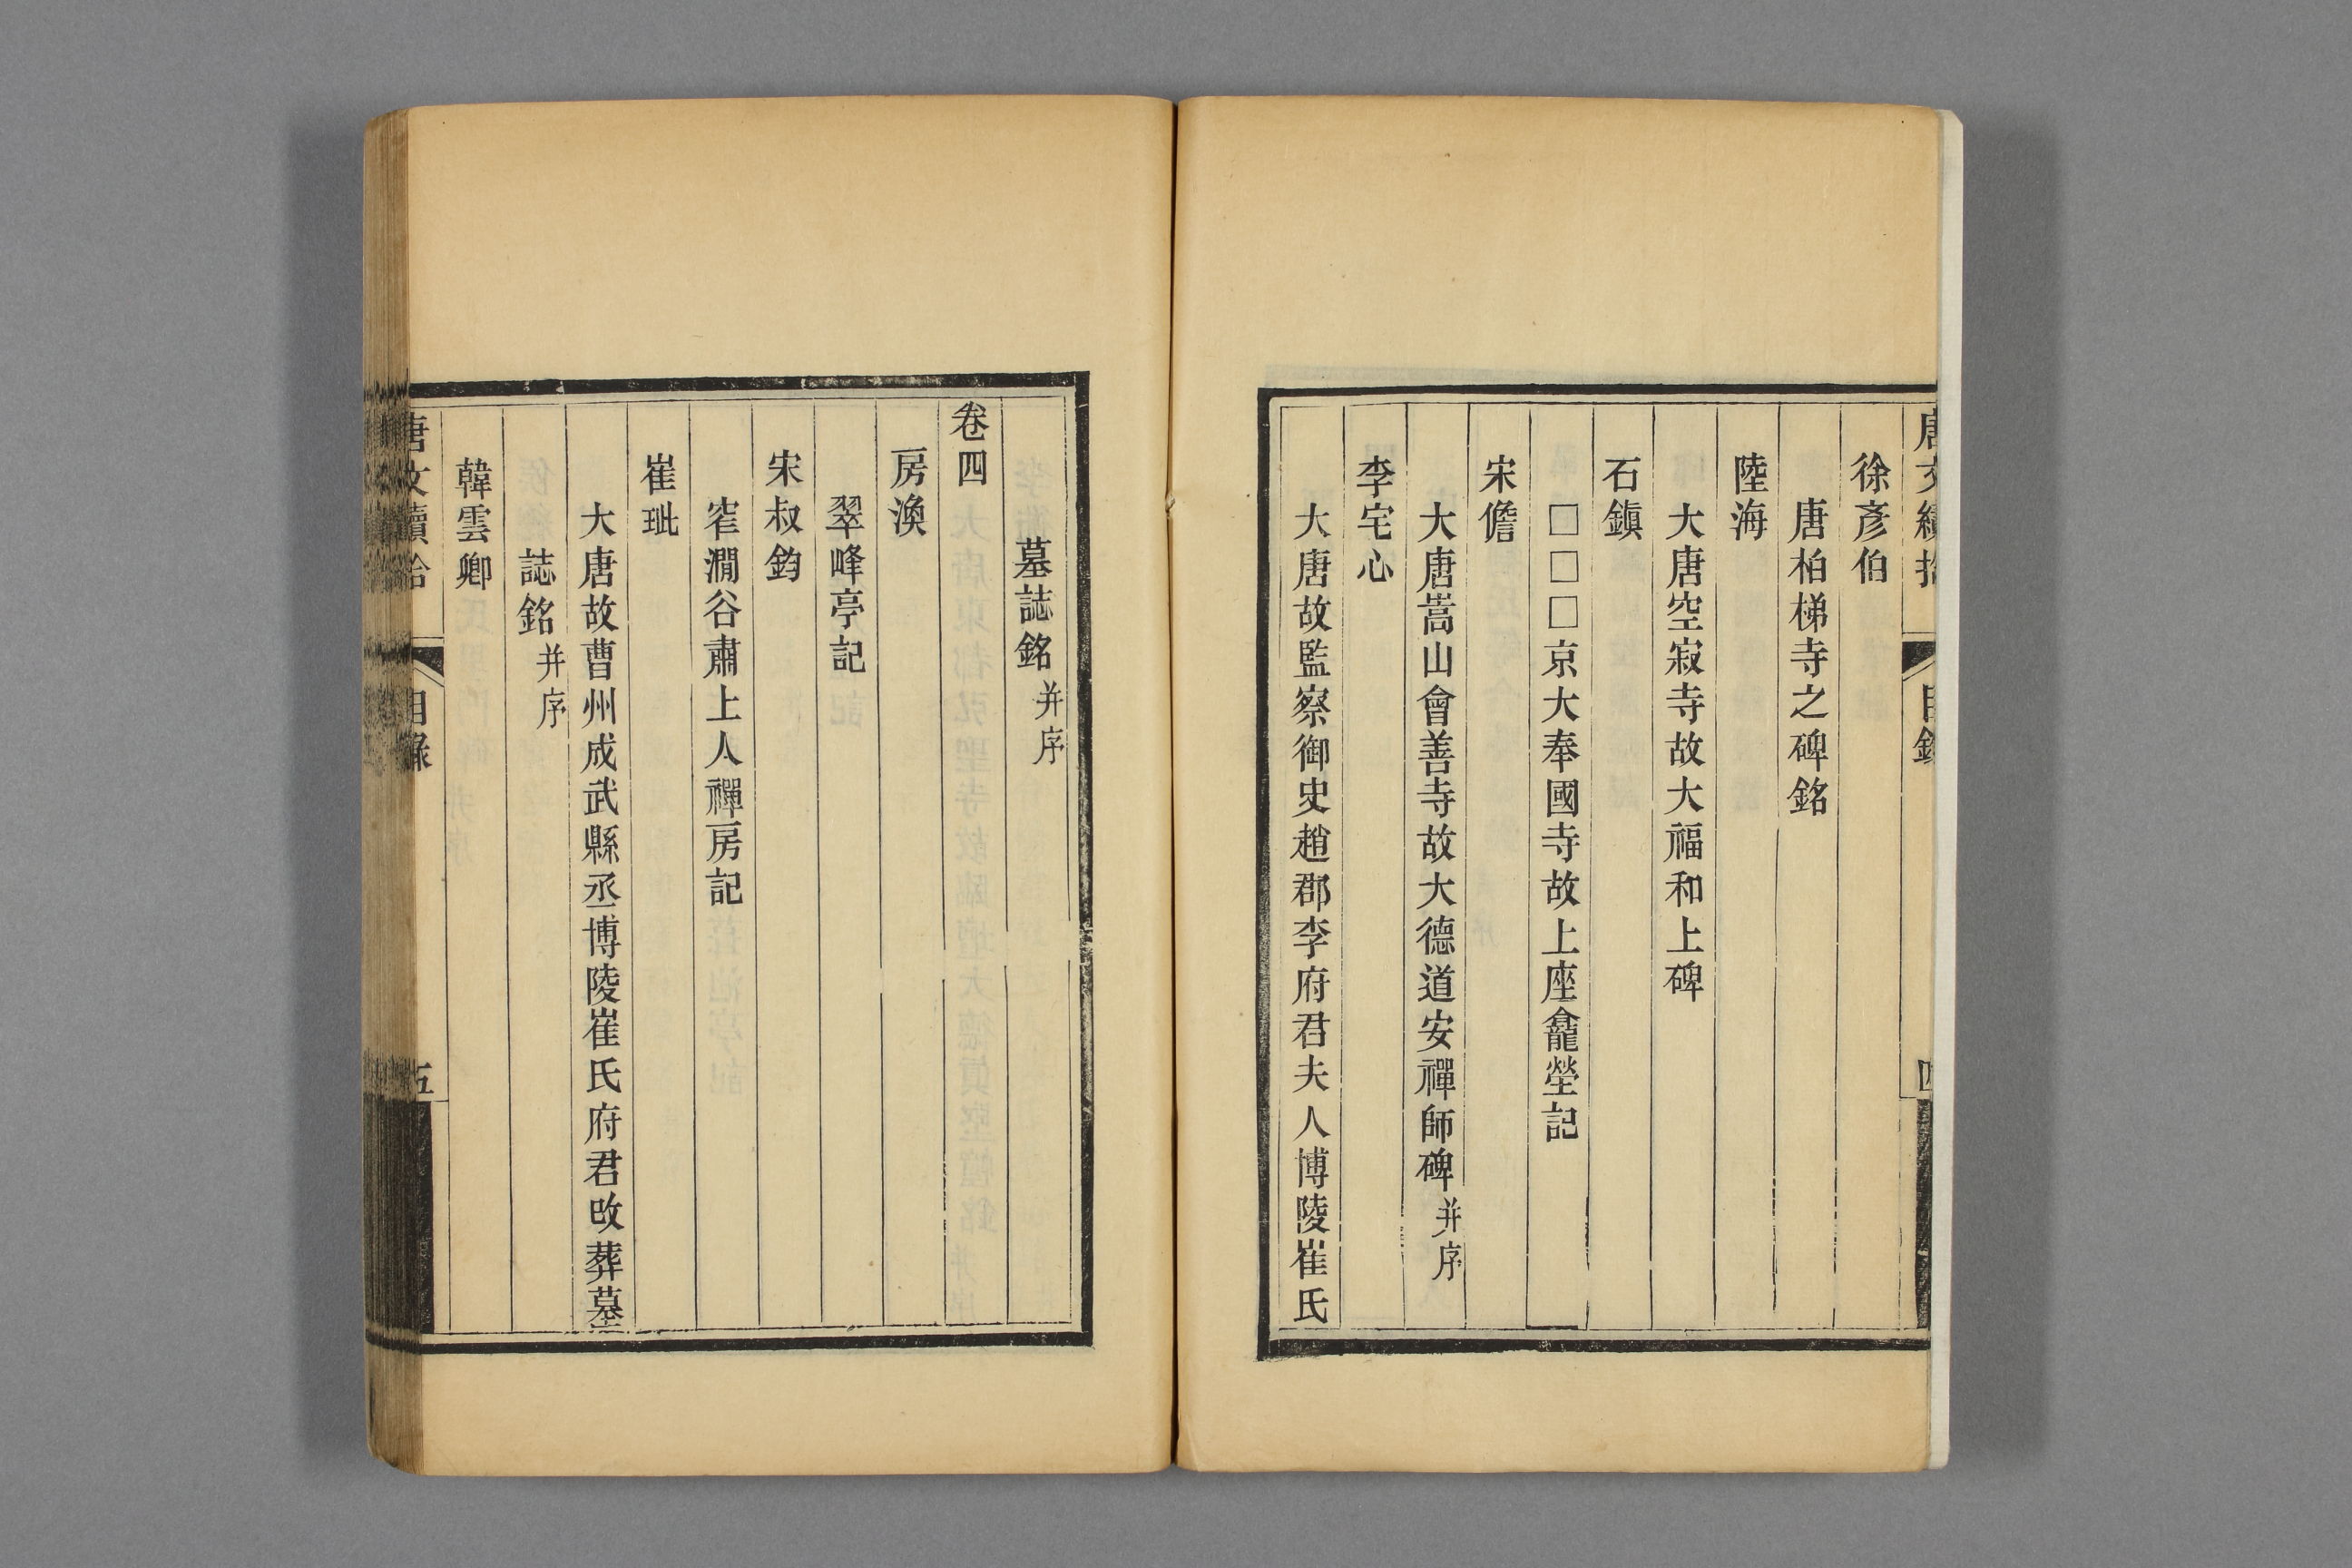 唐文續拾 目錄 四
徐彥伯
唐柏梯寺之碑銘
陸海
大唐空寂寺故大福和上碑
石鎭
□□□京大奉國寺故上座龕塋記
宋儋
大唐嵩山會善寺故大德道安禪師碑并序
李宅心
大唐故監察御史趙郡李府君夫人博陵崔氏
墓誌銘并序
卷四
房渙
翠峰亭記
宋叔鈞
窄澗谷肅上人禪房記
崔玼
大唐故曹州成武縣丞博陵崔氏府君改葬墓
誌銘并序
韓雲卿
唐文續拾 目錄 五